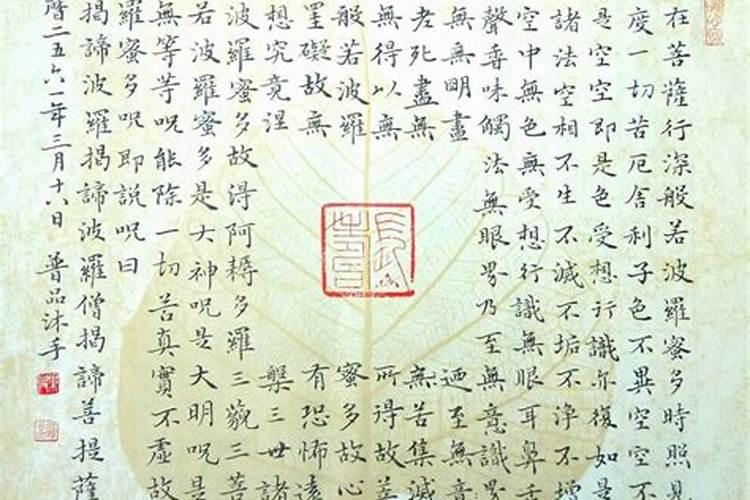 在菩薩行深般若波羅蜜多時照見
度一切苦厄舍利子色不異空空不
是空空即是色受想行識亦復如是
諸法空相不生不滅不垢不淨不增
空中無色無受想行識無眼耳鼻舌
聲香味觸法無眼界乃至無意識界
無無明盡迺至無
老死盡無無苦集滅
無得以無所得故菩
般若波羅蜜多故心
罣礙故無有恐怖遠
想究竟涅槃三世諸
波羅蜜多故得阿耨多羅三藐三菩
若波羅蜜多是大神呪是大明呪是
無等等呪能除一切苦真實不虛故
羅蜜多呪即說呪曰
揭諦波羅揭諦波羅僧揭諦菩提薩
曆二五六一年三月十六日 普品沐手